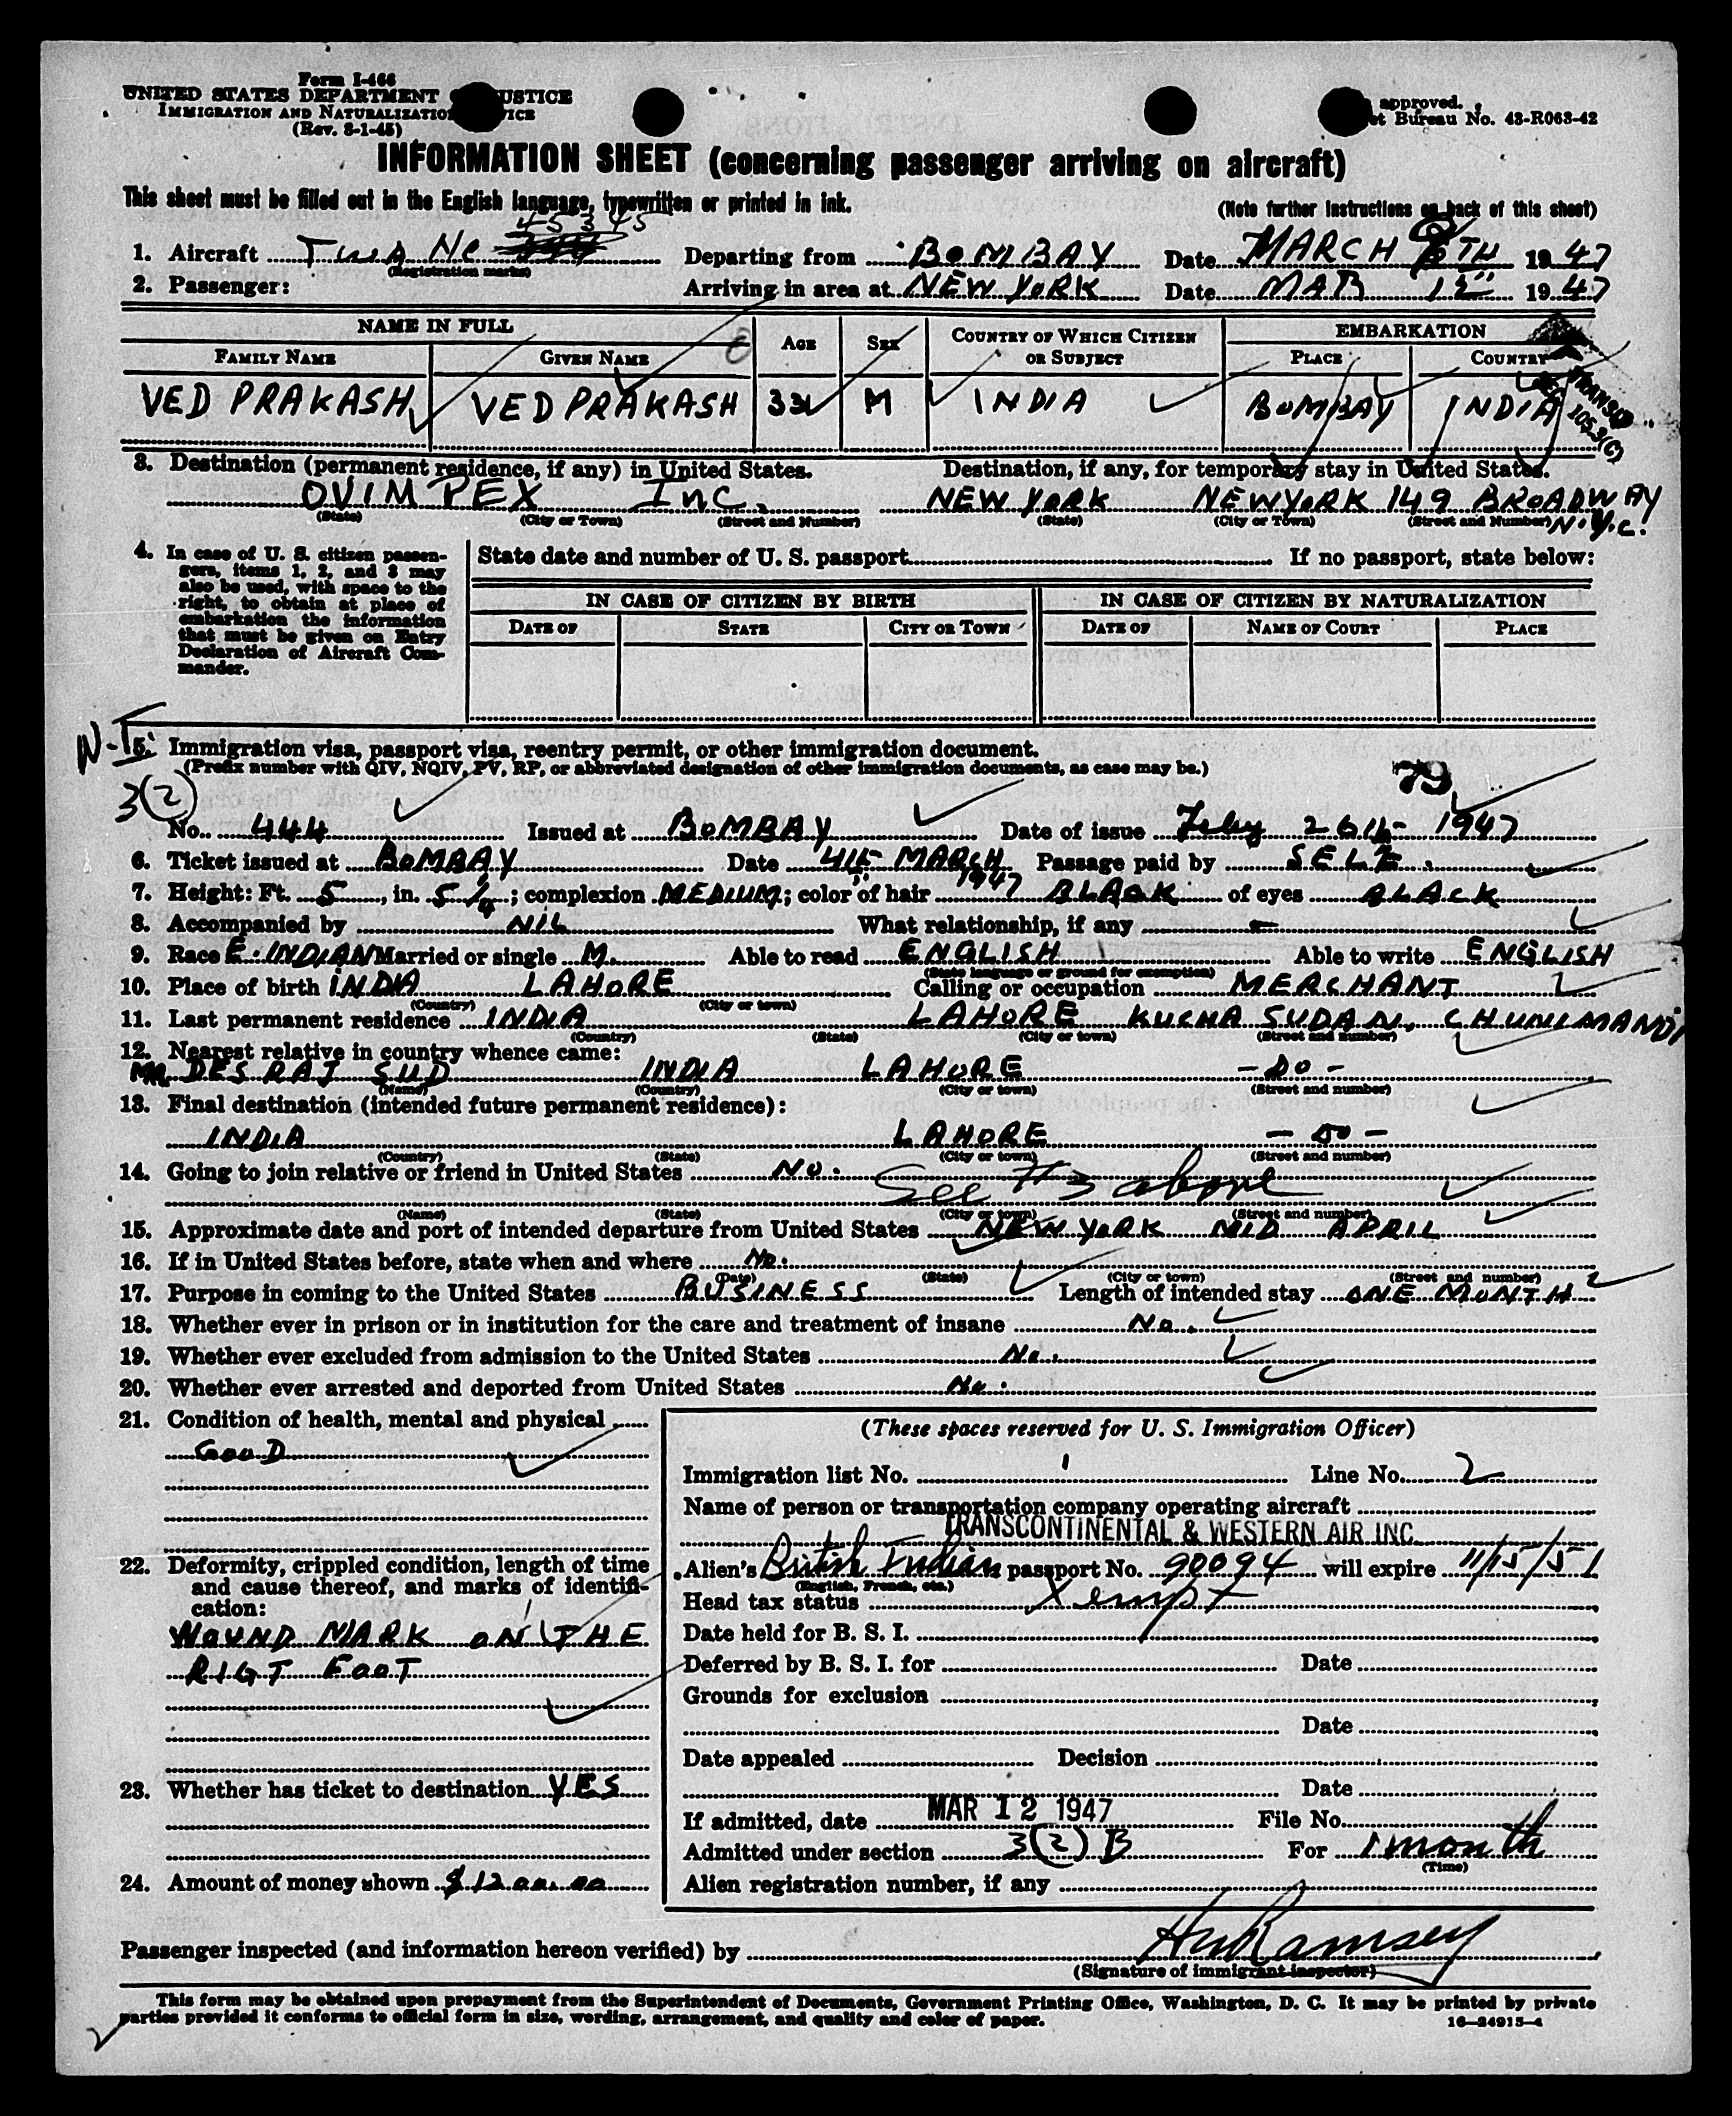 Form I-466
UNITED STATES DEPARTMENT JUSTICE
IMMIGRATION AND NATURALIZATION
(Rev. 8-1-45)
approved.
Bureau No. 43-R063-42
INFORMATION SHEET (concerning passenger arriving on aircraft)
This sheet must be filled out in the English language, typewritten or printed in ink.
(Note further instructions on back of this sheet)
45345
1. Aircraft TWA No Departing from BOMBAY Date MARCH TH 1947
(Registration marks)
2. Passenger: Arriving in area at NEW YORK Date MAR 12 1947
NAME IN FULL
FAMILY NAME GIVEN NAME AGE SEX COUNTRY OF WHICH CITIZEN OR SUBJECT EMBARKATION
PLACE COUNTRY
VED PRAKASH VED PRAKASH 33 M INDIA BOMBAY INDIA
3. Destination (permanent residence, if any) in United States. Destination, if any, for temporary stay in United States.
OVIMPEX Inc. NEW YORK NEWYORK 149 BROADWAY
(State) (City or Town) (Street and Number) (State) (City or Town) (Street and Number) N.Y.C.
4. In case of U. S. citizen passengers, items 1, 2, and 3 may also be used, with space to the right, to obtain at place of embarkation the information that must be given on Entry Declaration of Aircraft Commander.
State date and number of U. S. passport If no passport, state below:
IN CASE OF CITIZEN BY BIRTH IN CASE OF CITIZEN BY NATURALIZATION
DATE OF STATE CITY OR TOWN DATE OF NAME OF COURT PLACE
N-I
5. Immigration visa, passport visa, reentry permit, or other immigration document.
(Prefix number with QIV, NQIV, PV, RP, or abbreviated designation of other immigration documents, as case may be.)
3(2)
79
No. 444 Issued at BOMBAY Date of issue Feby 26th 1947
6. Ticket issued at BOMBAY Date 4th MARCH 1947 Passage paid by SELF.
7. Height: Ft. 5, in. 5 1/4; complexion MEDIUM; color of hair BLACK of eyes BLACK
8. Accompanied by NIL What relationship, if any -
9. Race E. INDIAN Married or single M. Able to read ENGLISH Able to write ENGLISH
(State language or ground for exemption)
10. Place of birth INDIA LAHORE Calling or occupation MERCHANT
(Country) (City or town)
11. Last permanent residence INDIA LAHORE KUCHA SUDAN, CHUNIMANDI
(Country) (State) (City or town) (Street and number)
12. Nearest relative in country whence came:
MR. DES RAJ SUD INDIA LAHORE -DO-
(Name) (Country) (City or town) (Street and number)
13. Final destination (intended future permanent residence):
INDIA LAHORE -DO-
(Country) (State) (City or town) (Street and number)
14. Going to join relative or friend in United States No.
See #3 above
(Name) (State) (City or town) (Street and number)
15. Approximate date and port of intended departure from United States NEW YORK MID APRIL
16. If in United States before, state when and where No.
(Date) (State) (City or town) (Street and number)
17. Purpose in coming to the United States BUSINESS Length of intended stay ONE MONTH
18. Whether ever in prison or in institution for the care and treatment of insane No.
19. Whether ever excluded from admission to the United States No.
20. Whether ever arrested and deported from United States No.
21. Condition of health, mental and physical
GOOD
22. Deformity, crippled condition, length of time and cause thereof, and marks of identification:
WOUND MARK ON THE
RIGT FOOT
23. Whether has ticket to destination YES
24. Amount of money shown $1200.00
(These spaces reserved for U. S. Immigration Officer)
Immigration list No. 1 Line No. 2
Name of person or transportation company operating aircraft
TRANSCONTINENTAL & WESTERN AIR INC.
Alien's British Indian passport No. 90094 will expire 11/15/51
(English, French, etc.)
Head tax status Xempt
Date held for B. S. I.
Deferred by B. S. I. for Date
Grounds for exclusion
Date
Date appealed Decision
Date
If admitted, date MAR 12 1947 File No.
Admitted under section 3(2)B For 1 month
(Time)
Alien registration number, if any
Passenger inspected (and information hereon verified) by Ramsey
(Signature of immigrant inspector)
This form may be obtained upon prepayment from the Superintendent of Documents, Government Printing Office, Washington, D. C. It may be printed by private
parties provided it conforms to official form in size, wording, arrangement, and quality and color of paper.
16-24915-4